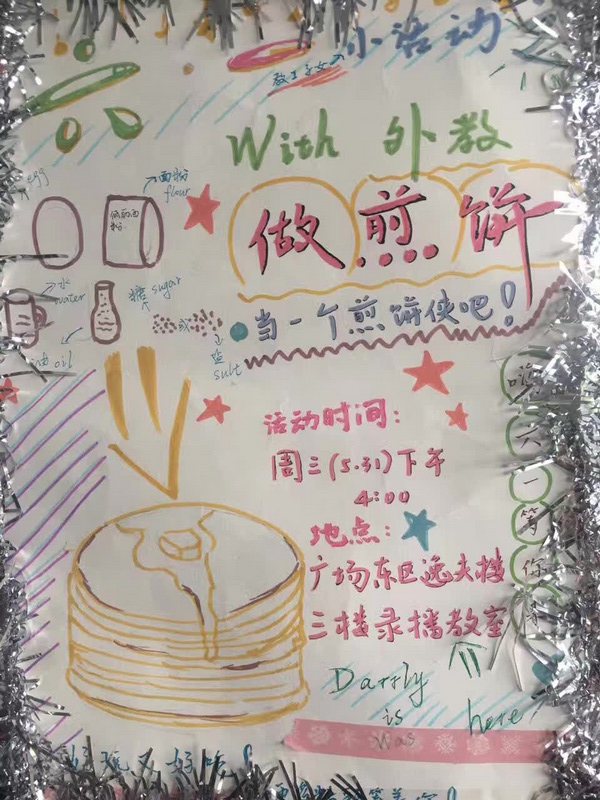 教工子女
小活动
With 外教
egg
面粉
flour
做煎饼
水
water
糖 sugar
或
油 oil
盐
sult
当一个煎饼侠吧!
活动时间:
周三(5.31)下午
4:00
地点:
广场东区逸夫楼
三楼录播教室
一
等
你
Darrly
is here
was
好玩又好吃!